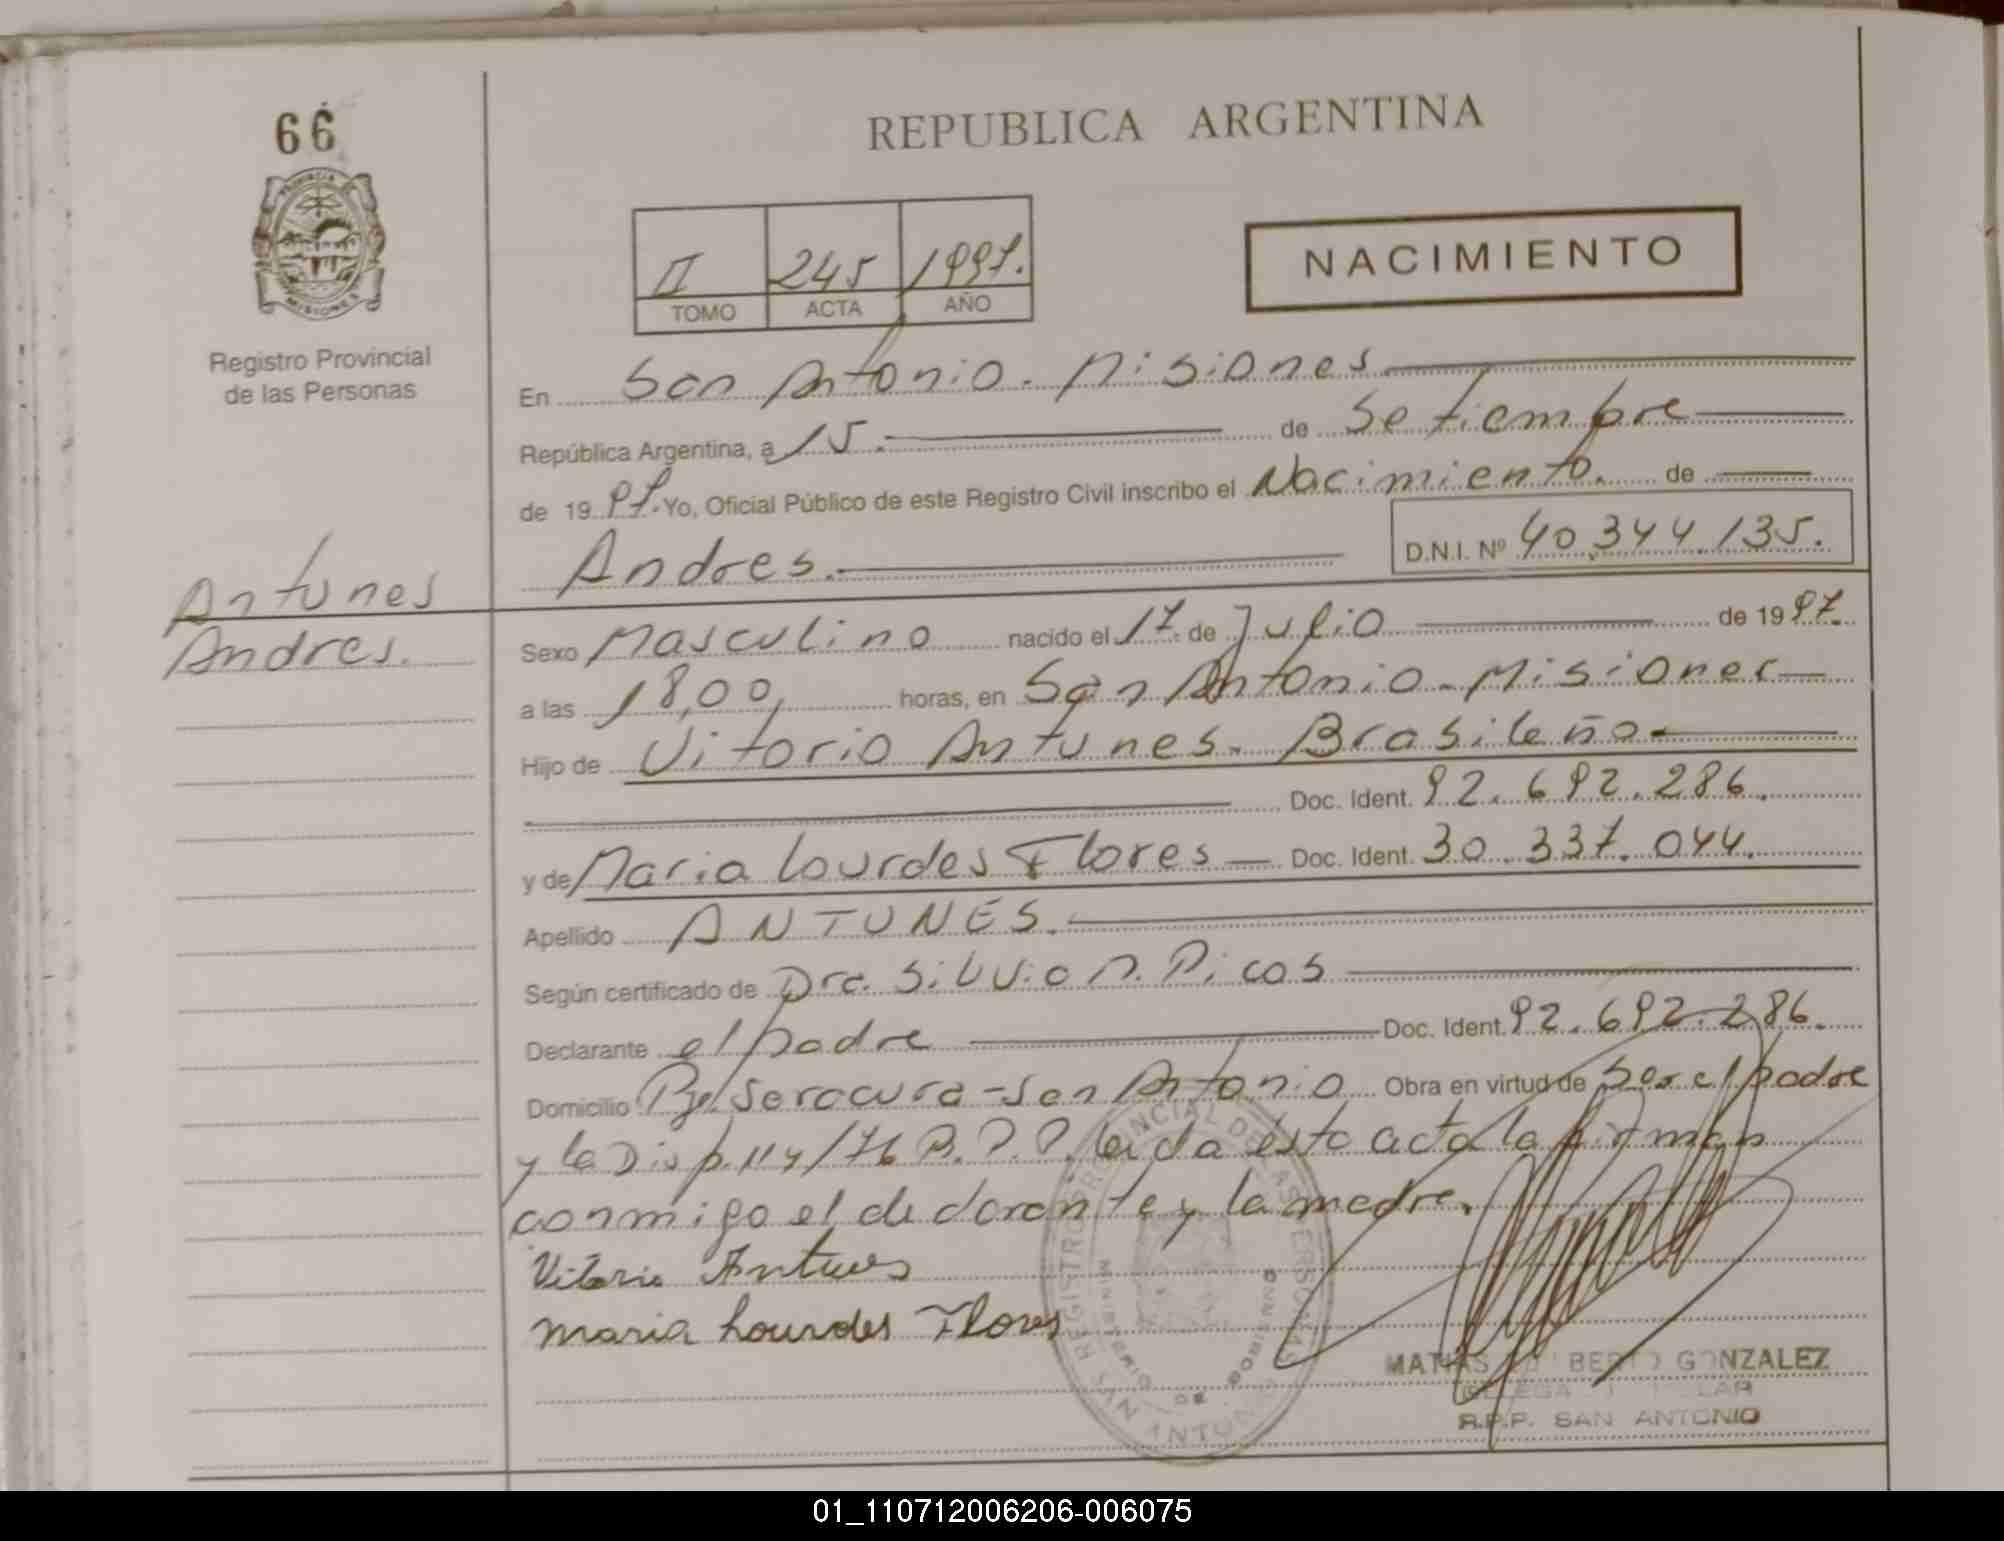 66
REPUBLICA ARGENTINA
PROVINCIA
MISIONES
Registro Provincial
de las Personas
II 245 1997.
TOMO ACTA AÑO
NACIMIENTO
En San Antonio. Misiones
República Argentina, a 15. de Setiembre
de 1997. Yo, Oficial Público de este Registro Civil inscribo el Nacimiento. de
Andres. D.N.I. Nº 40.344.135.
Antunes
Andres.
Sexo Masculino nacido el 17 de Julio de 1997.
a las 18,00 horas, en San Antonio - Misiones
Hijo de Vitorio Antunes. Brasileño
Doc. Ident. 92.692.286.
y de Maria Lourdes Flores Doc. Ident. 30.337.044.
Apellido ANTUNES.
Según certificado de Dra. Silvia Picos
Declarante el padre Doc. Ident. 92.692.286.
Domicilio Seracura - San Antonio Obra en virtud de ser el padre
y la Disp. 114/76 R.P.P. leida esta acta la firman
conmigo el declarante y la madre.
Vitorio Antunes
maria Lourdes Flores
REGISTRO PROVINCIAL DE LAS PERSONAS
MINISTERIO DE GOBIERNO
SAN ANTONIO
MATIAS GONZALEZ
R.P.P. SAN ANTONIO
01_110712006206-006075